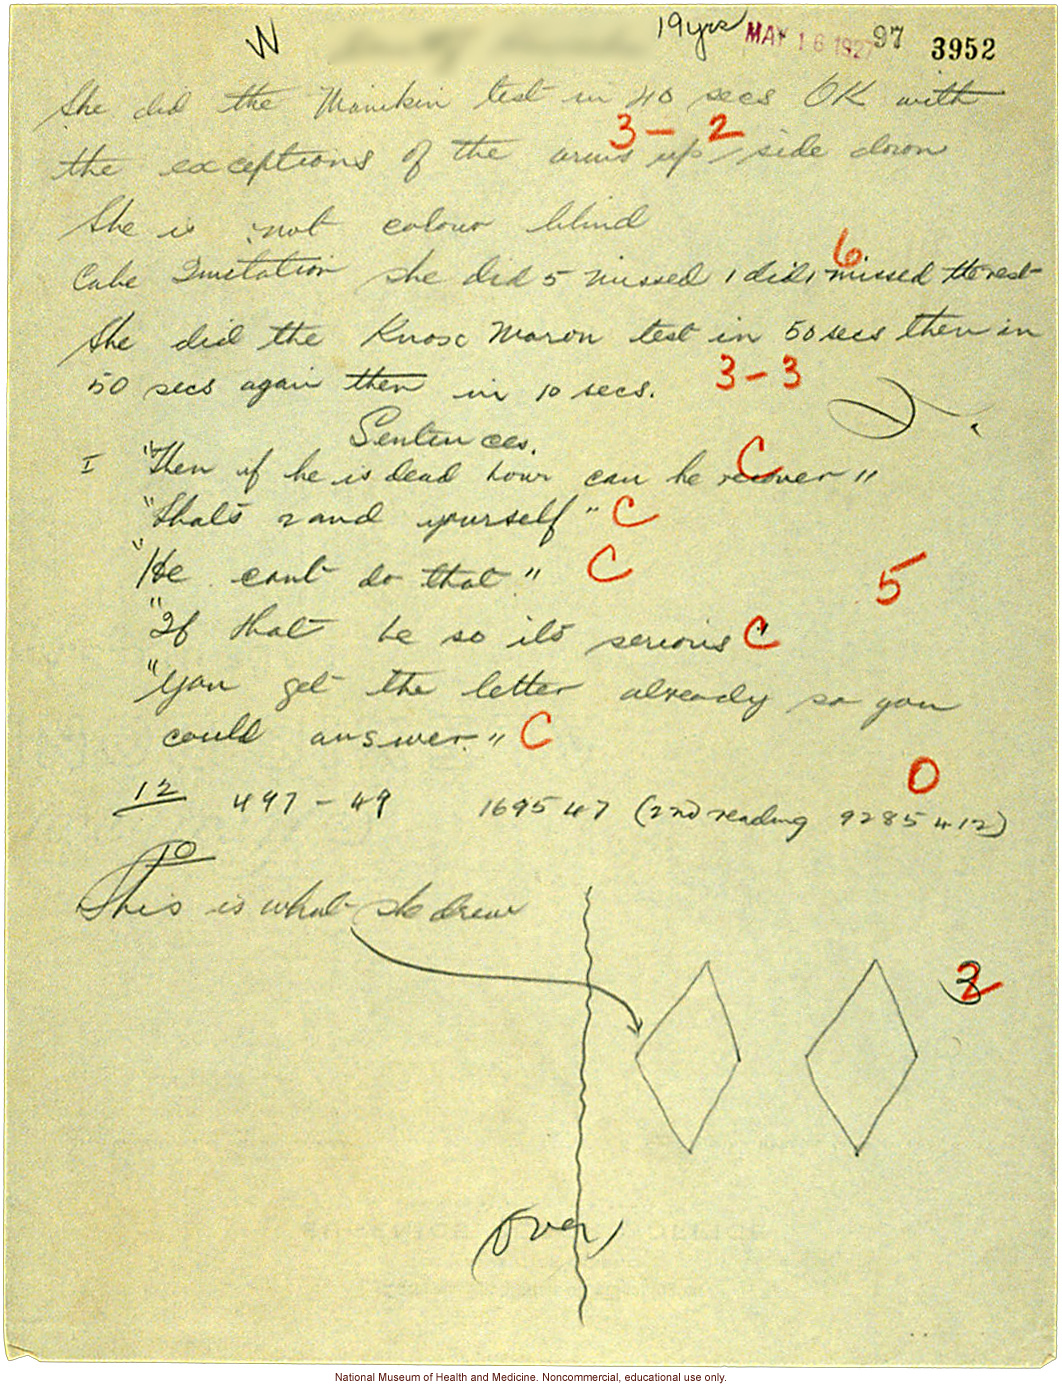 W 19yrs MAY 16 1927 97 3952
She did the Manikin test in 40 secs OK with
3 - 2
the exceptions of the arms up/side down
She is not colour blind
6
Cube Imitation she did 5 missed 1 did 1 missed the rest
She did the Knox Moron test in 50 secs then in
50 secs again then in 10 secs. 3-3
Sentences.
I "Then if he is dead how can he recover" C
"thats 2 and yourself" C
"He cant do that." C
5
"If that be so its serious" C
"You get the letter already so you
could answer." C
0
12 497-49 169547 (2nd reading 9285412)
10
This is what she drew
2
(over)
National Museum of Health and Medicine. Noncommercial, educational use only.